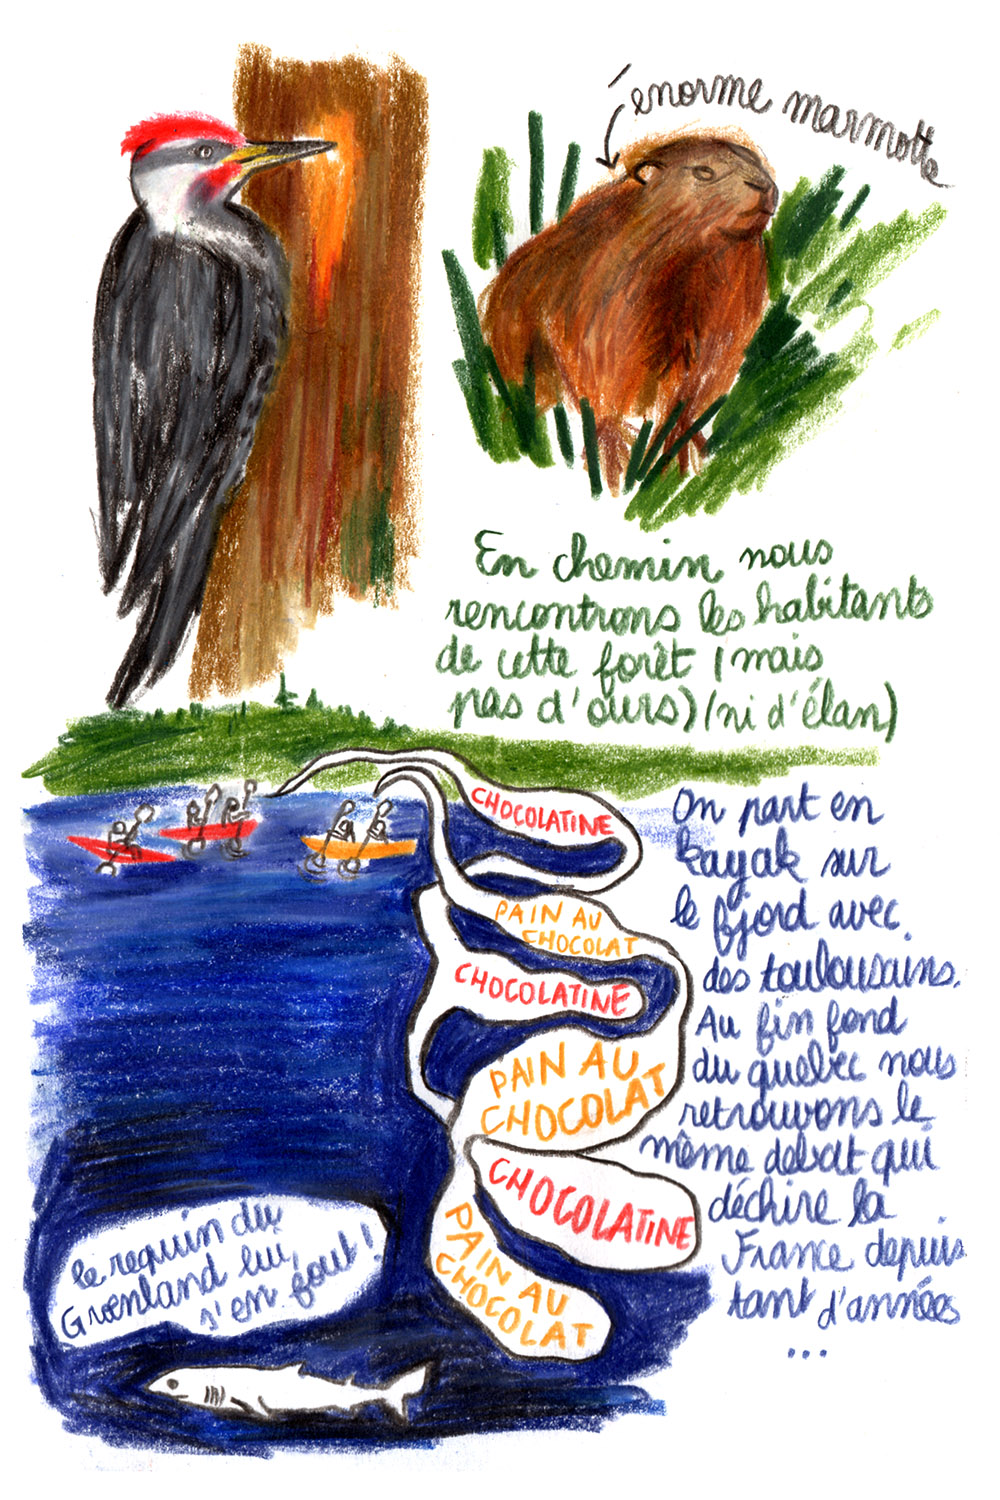 énorme marmotte
En chemin nous
rencontrons les habitants
de cette forêt (mais
pas d'ours) (ni d'élan)
CHOCOLATINE
PAIN AU
CHOCOLAT
CHOCOLATINE
PAIN AU
CHOCOLAT
CHOCOLATINE
PAIN AU
CHOCOLAT
On part en
kayak sur
le fjord avec
des toulousains.
Au fin fond
du quebec nous
retrouvons le
même debat qui
déchire la
France depuis
tant d'années
...
le requin du
Groenland lui,
s'en fout !